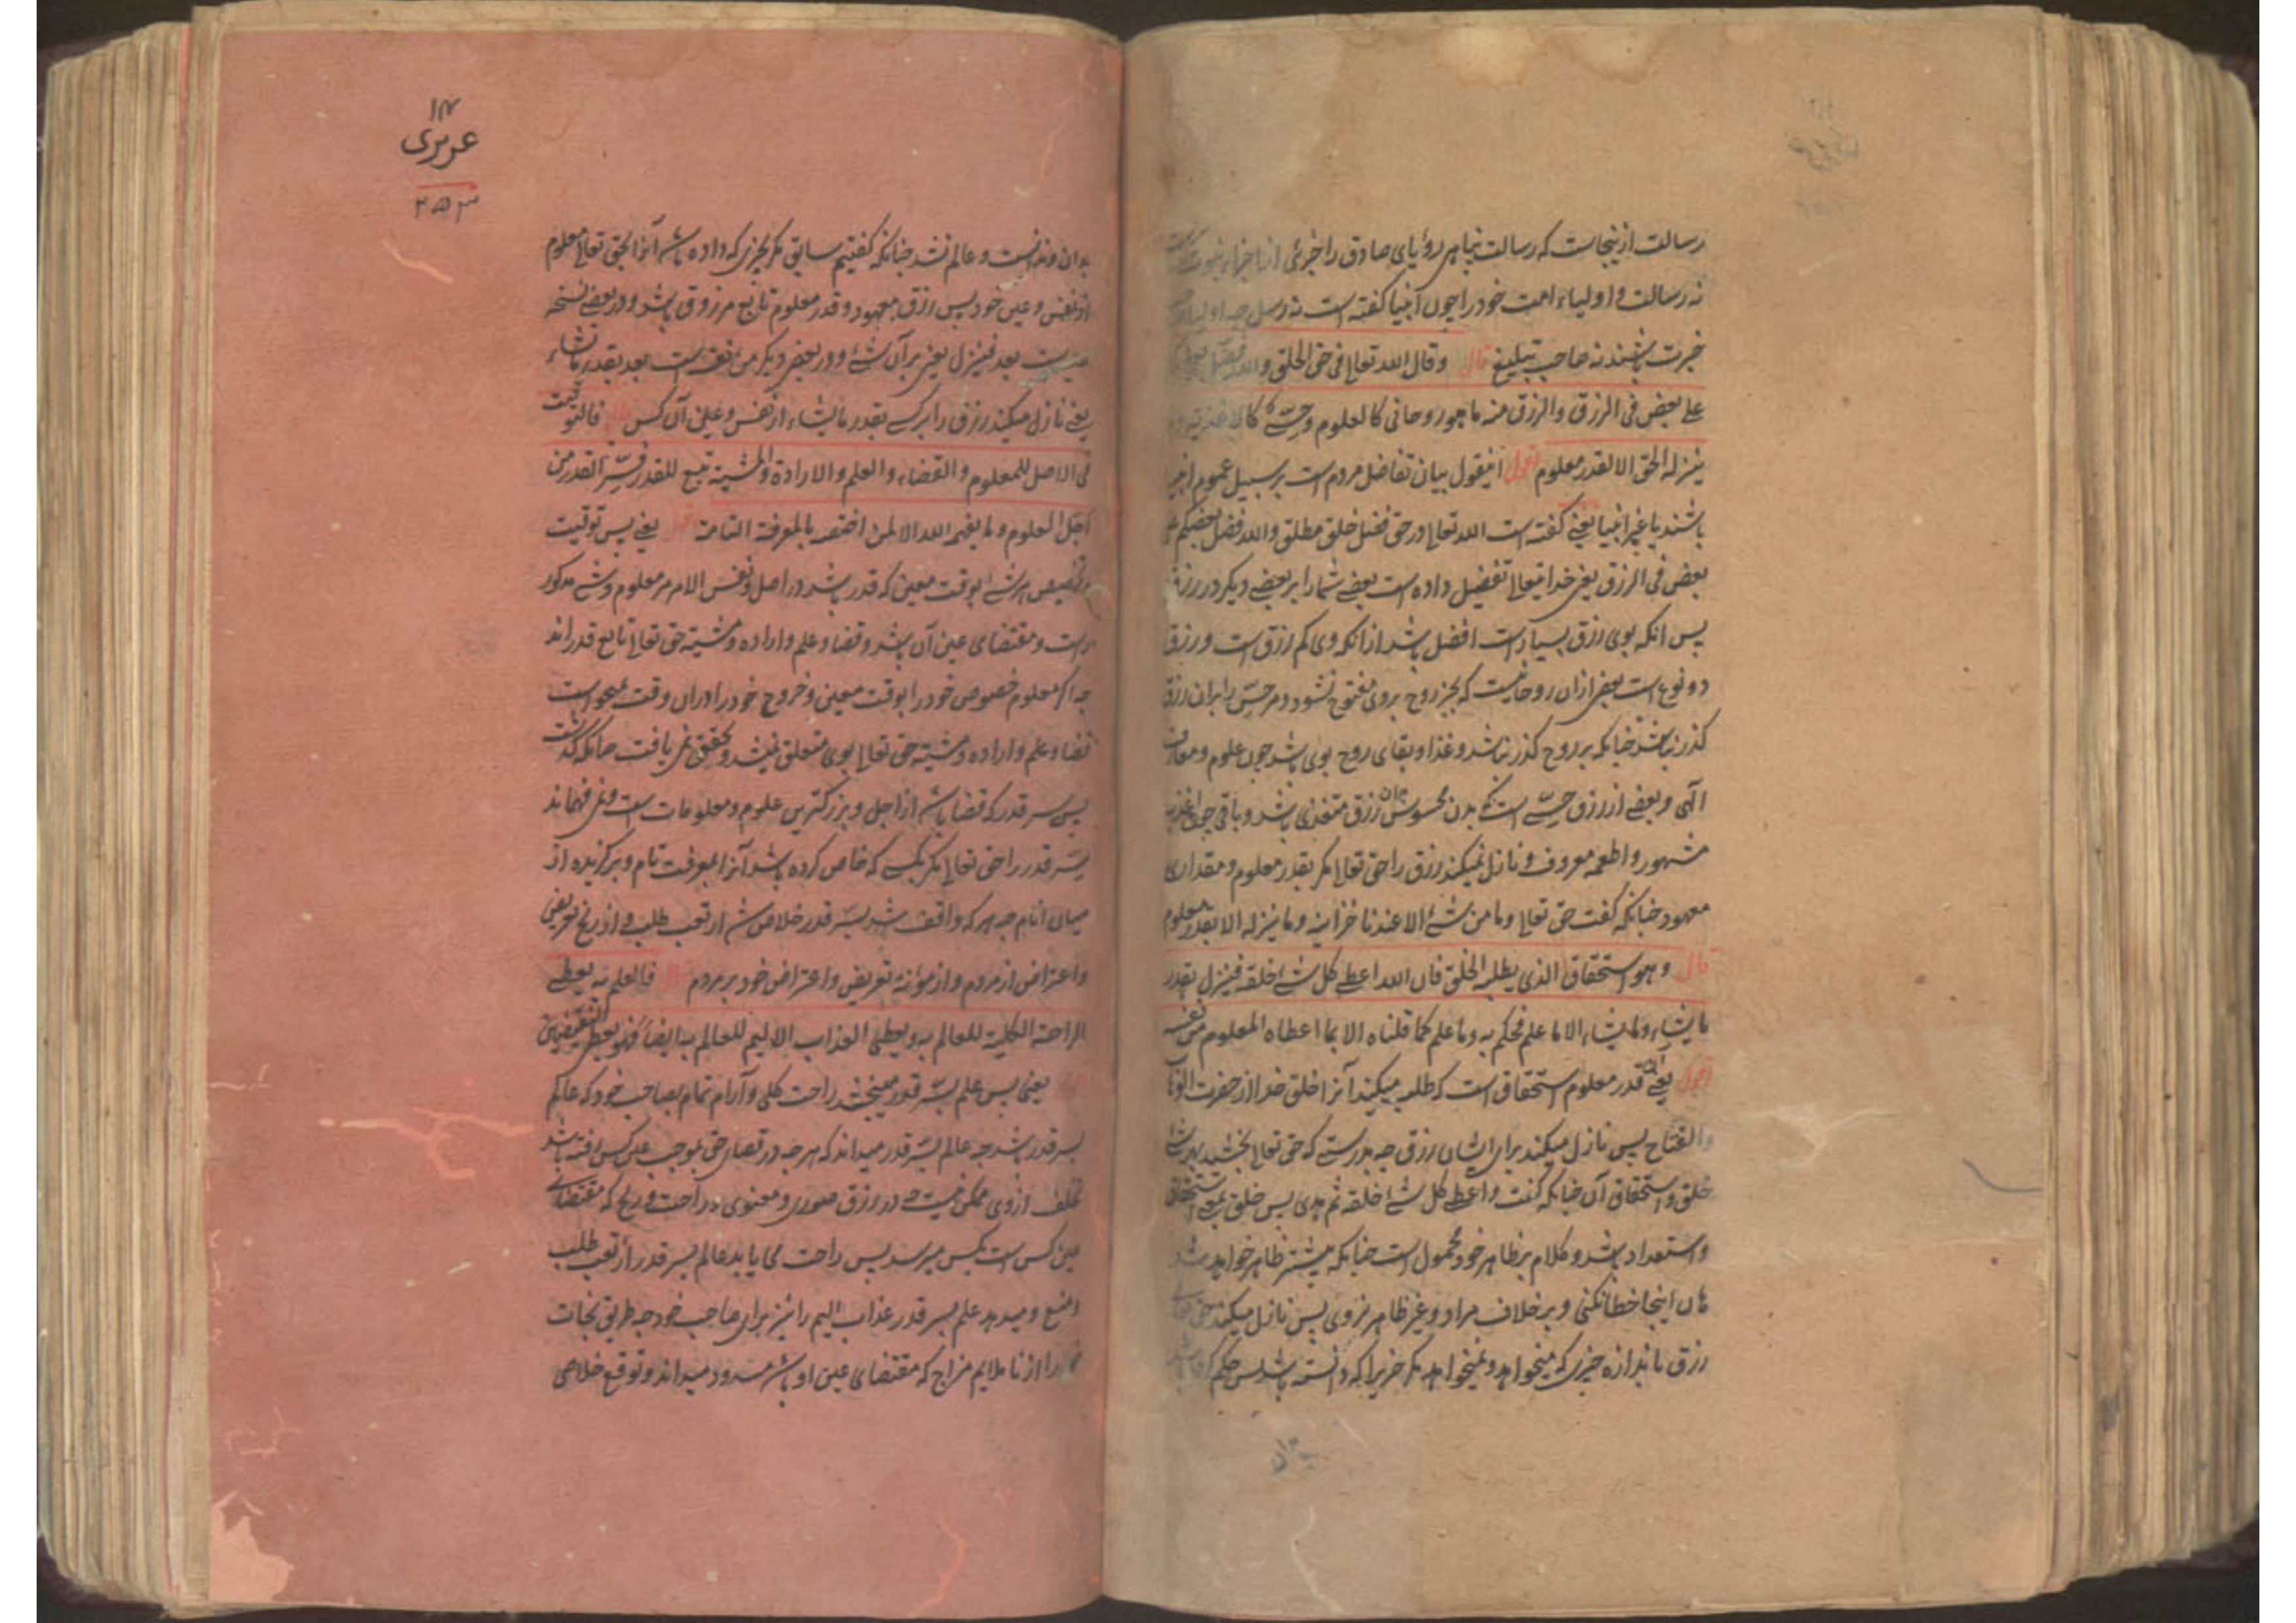 رسالت ازینجاست که رسالت پناهی رؤیای صادق را جزئی از اجزاء نبوت
نه رسالت و اولیاء امت خود را چون انبیا گفته است نه رسل چه اولیا
خبرت باشند نه صاحب تبلیغ قال و قال الله تعالی فی حق الخلق والله فضل بعضکم
علی بعض فی الرزق والرزق منه ما هو روحانی کالعلوم و حسّی کالاغذیة و ما
ینزله الحق الا بقدر معلوم اقول اینقول بیان تفاضل مردم است بر سبیل عموم انبیا
باشند یا غیر انبیا یعنی گفته است الله تعالی در حق فضل خلق مطلق والله فضل بعضکم علی
بعض فی الرزق یعنی خدایتعالی تفضیل داده است بعضی شما را بر بعضی دیگر در رزق
پس انکه بوی رزق بسیار است افضل باشد از انکه وی کم رزق است و رزق
دو نوع است بعضی ازان روحانیست که بجز روح بروی مفتوح نشود و مر حسّ را بران رزق
گذر نباشد چنانکه بر روح گذر نباشد و غذا و بقای روح بوی باشد چون علوم و معارف
الهی و بعضی از رزق حسّی است که بدن محسوس بدان رزق متغذی باشد و باقی چون اغذیه
مشهور و اطعمه معروف و نازل نمیکند رزق را حق تعالی مگر بقدر معلوم و مقداری
معهود چنانکه گفت حق تعالی وما من شئ الا عندنا خزاینه وما ینزله الا بقدر معلوم
قال وهو استحقاق الذی یطلبه الخلق فان الله اعطی کل شئ خلقه فینزل بقدر
ما یشاء وما یشاء الا ما علم فحکم به وما علم کما قلناه الا بما اعطاه المعلوم من نفسه
اقول یعنی آن قدر معلوم استحقاق است که طلب میکند آنرا خلق خدا از حضرت الوهاب
والفتاح پس نازل میکند برای ایشان رزق چه بدرستی که حق تعالی بخشید هر شئ را
خلق و استحقاق آن چنانکه گفت و اعطی کل شئ خلقه ثم هدی پس خلق بمعنی استحقاق
و استعداد باشد و کلام بر ظاهر خود محمول است چنانکه پیشتر ظاهر خواهد شد
هان اینجا خطا نکنی و بر خلاف مراد و غیر ظاهر نروی پس نازل میکند حق تعالی
رزق باندازه چیزی که میخواهد و نمیخواهد مگر چیزیرا که دانسته باشد پس حکم کرده باشد
بدان
عزیزی
۲۵۳
بدان و ندانست و عالم نشد چنانکه گفتیم سابق مگر بچیزی که داده باشد آنرا بحق تعالی معلوم
از نفس و عین خود پس رزق معهود و قدر معلوم تابع مرزوق باشد و در بعضی نسخه
بعد فینزل یعنی بر آن شئ و در بعضی دیگر من نفسه است بعد بقدر ما یشاء
یعنی نازل میکند رزق را بر کسی بقدر ما یشاء از نفس و عین آن کس قال فالتوقیت
فی الاصل للمعلوم والقضاء والعلم والارادة والمشیة تبع للقدر فسّر القدر من
اجلّ العلوم وما یفهمه الله الا لمن اختصه بالمعرفة التامة اقول یعنی پس توقیت
و تخصیص هر شئ بوقت معین که قدر باشد در اصل و نفس الامر مر معلوم و شئ مذکور
است و مقتضای عین آن باشد و قضا و علم و اراده و مشیة حق تعالی تابع قدر اند
چه اگر معلوم خصوص خود را بوقت معین و خروج خود را دران وقت نمیخواست
قضا و علم و اراده و مشیة حق تعالی بوی متعلق نمیشد و تحقق نمی یافت چنانکه گذشت
پس سر قدر که قضا باشد از اجل و بزرگترین علوم و معلومات است و نمی فهماند
سّر قدر را حق تعالی مگر بکسی که خاص کرده باشد آنرا بمعرفت تام و برگزیده از
میان انام چه هر که واقف شد بسّر قدر خلاص شد از تعب طلب و از رنج تعریض
و اعتراض از مردم و از مؤنة تعریض و اعتراض خود بر مردم قال فالعلم به یعطی
الراحة الکلیة للعالم به و یعطی العذاب الالیم للعالم به ایضا فهو یعطی النقیضین
یعنی پس علم بسّر قدر میبخشد راحت کلی و آرام تمام بصاحب خود که عالم
بسر قدر باشد چه عالم بسّر قدر میداند که هر چه در قضای حق بموجب عین کس رفته باشد
تخلف ازوی ممکن نیست چه در رزق صوری و معنوی و راحت و رنج که مقتضای
عین کس است بکس میرسد پس راحت می یابد عالم بسر قدر از تعب طلب
و منع و میدهد علم بسر قدر عذاب الیم را نیز برای صاحب خود چه طریق نجات
را از ناملایم مزاج که مقتضای عین او باشد مسدود میداند و توقع خلاصی